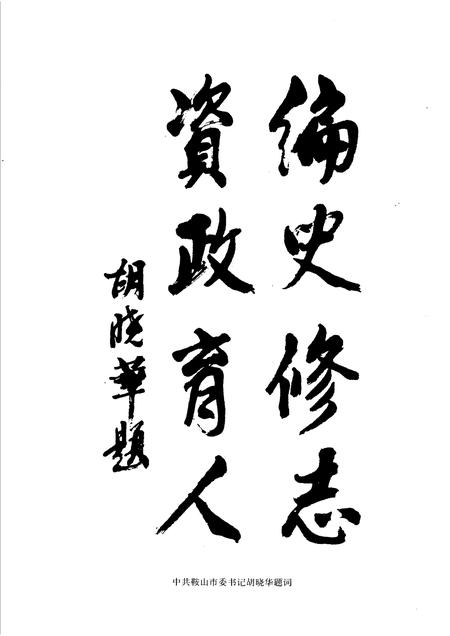 编史修志
資政育人
胡晓華题
中共鞍山市委书记胡晓华题词